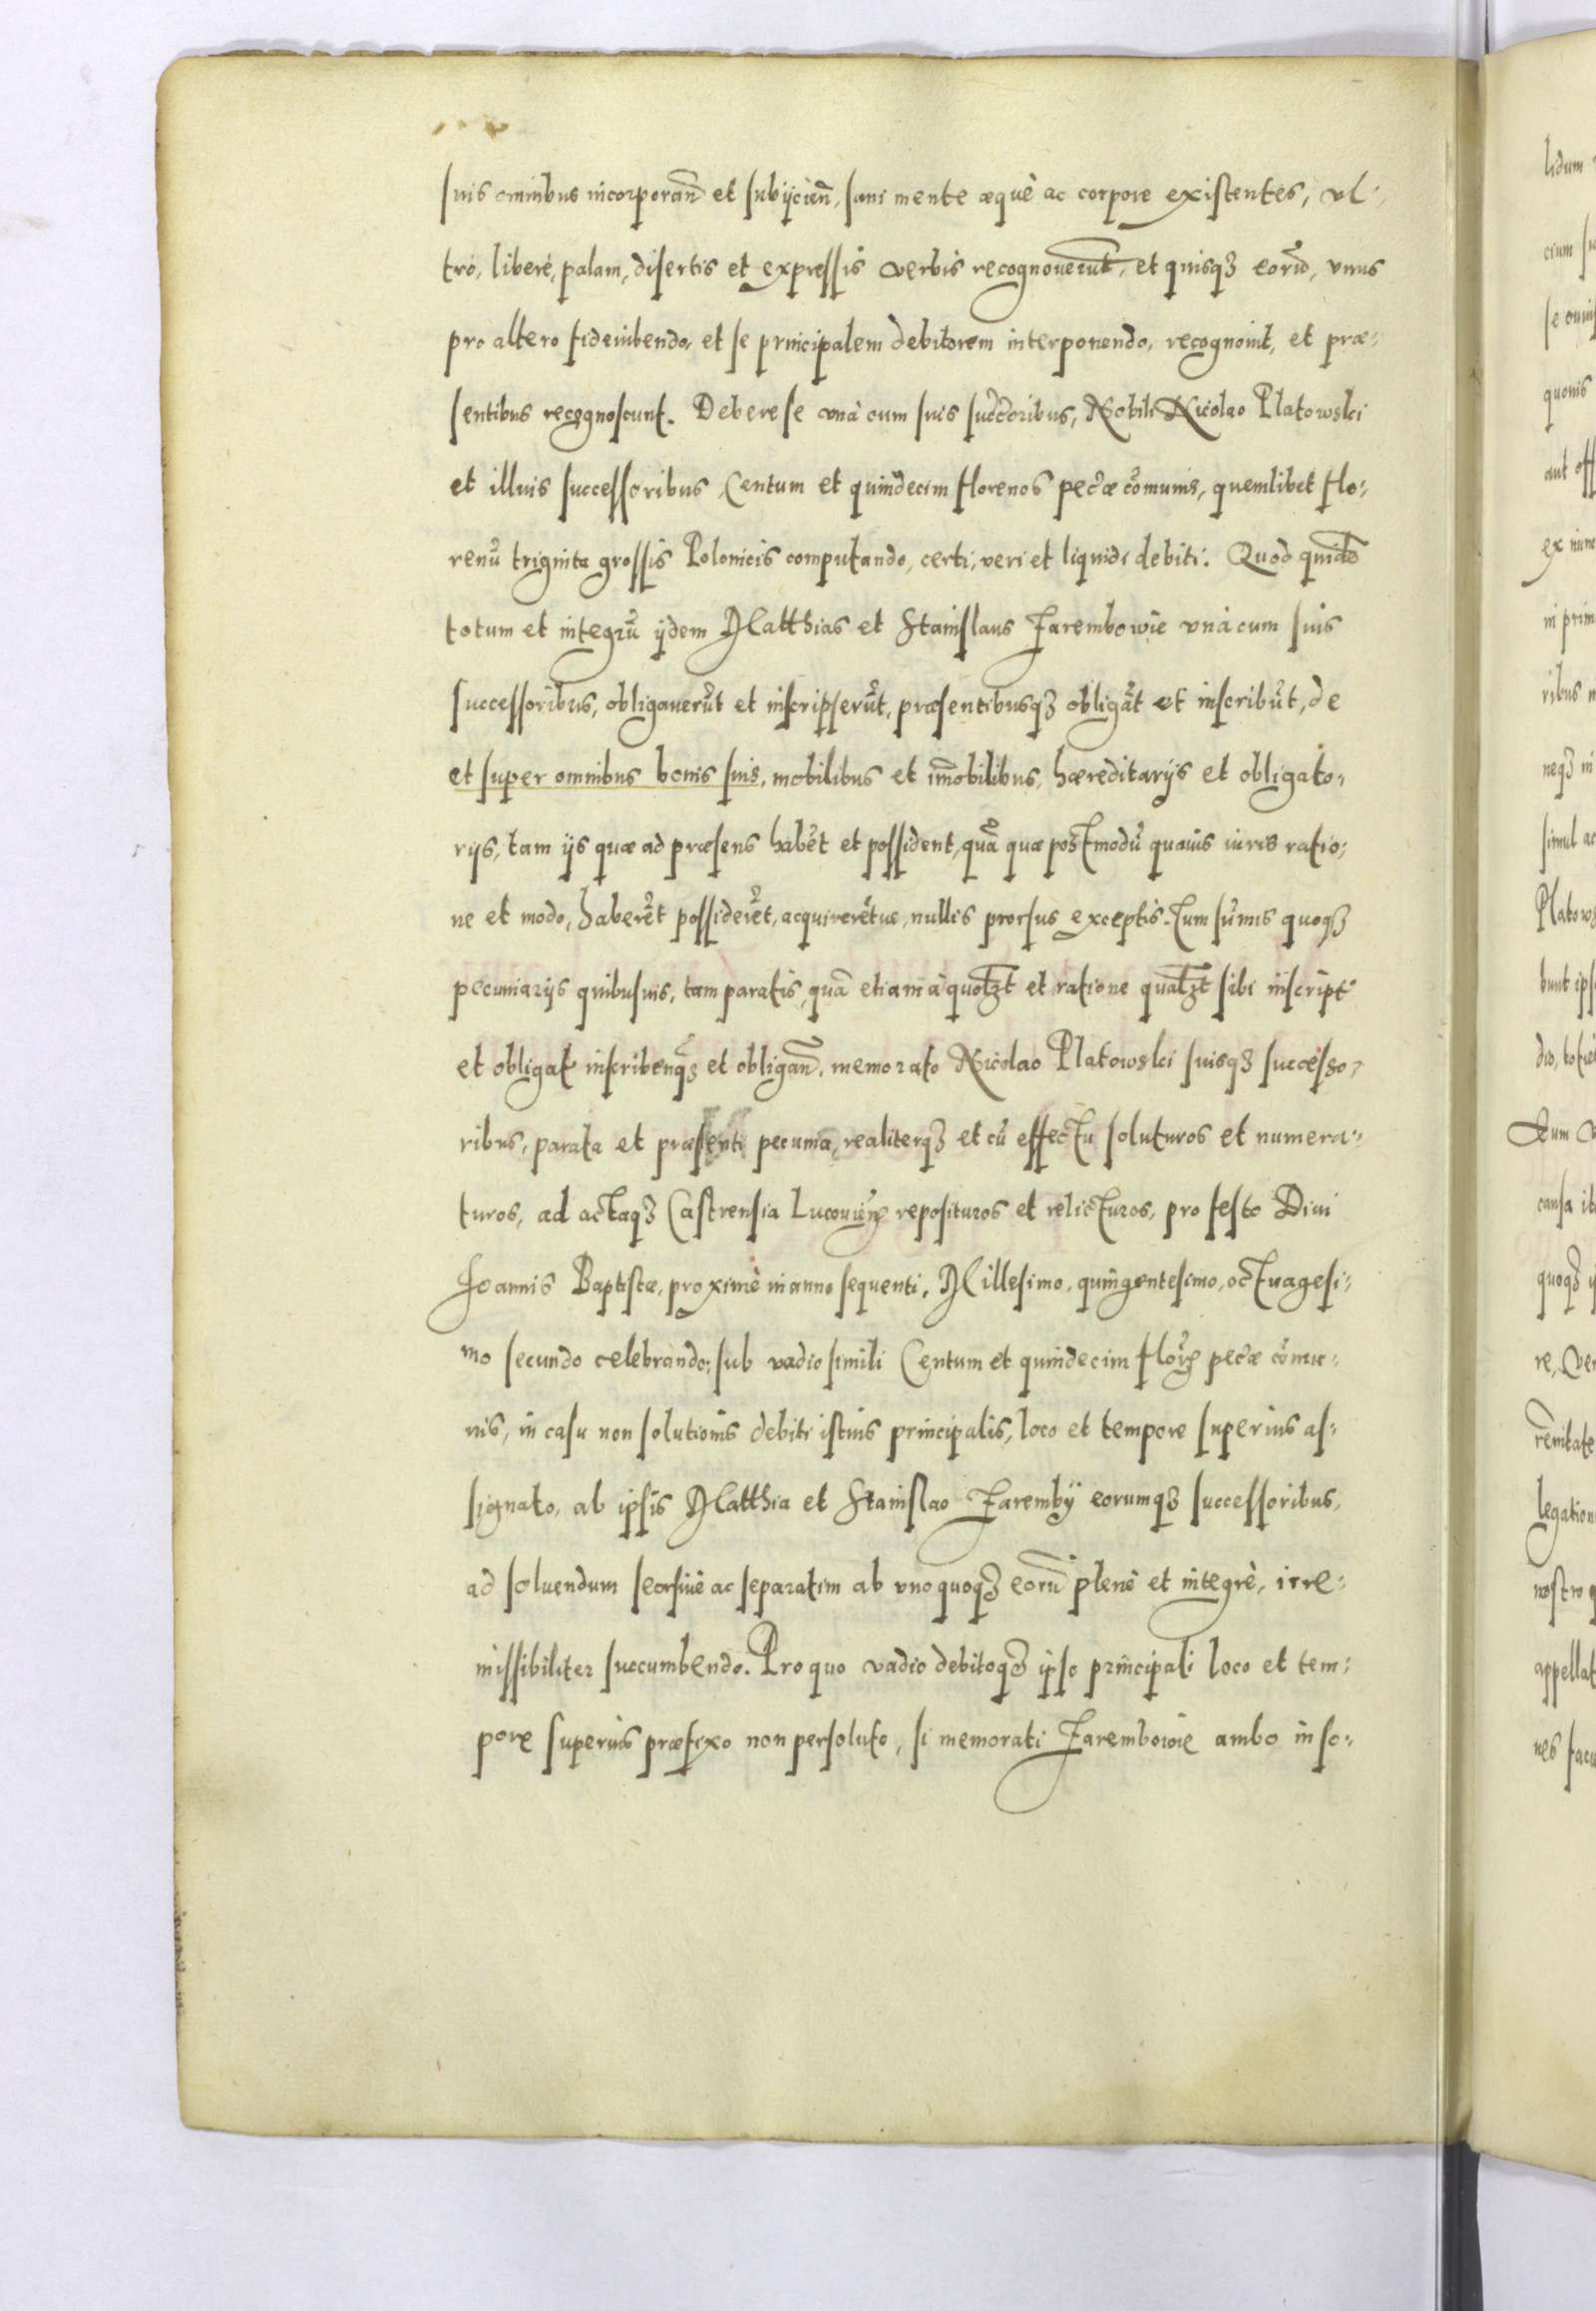 suis omnibus incorporan̄ et subijcien̄, sani mente æquè ac corpore existentes, vl-
trò, liberè, palam, disertis et expressis verbis recognouerunt, et quisqꝫ eorū, vnus
pro altero fideiubendo, et se principalem debitorem interponendo, recognouit, et præ-
sentibus recognoscunt. Debere se vnà cum suis succoribus, Nobili Nicolao Platowski
et illius successoribus, Centum et quindecim florenos pecæ comunis, quemlibet flo-
renū triginta grossis Polonicis computando, certi, veri et liquidi debiti. Quod quidē
totum et integrū ijdem Matthias et Stanislaus Zarembowie vnà cum suis
successoribus, obligauerūt et inscripserūt, præsentibusqꝫ obligāt et inscribūt, de
et super omnibus bonis suis, mobilibus et im̄obilibus, hæreditarijs et obligato-
rijs, tam ijs quæ ad præsens habēt et possident, quā quæ postmodū quauis iuris ratio-
ne et modo, haberēt possiderēt, acquirerētue, nullis prorsus exceptis. Tum sūmis quoqꝫ
pecuniarijs quibusuis, tam paratis, quā etiam à quolꝫt et ratione qualꝫt sibi inscript
et obligat inscribenqꝫ et obligan̄, memorato Nicolao Platowski suisqꝫ successo-
ribus, parata et præsenti pecunia, realiterqꝫ et cū effectu soluturos et numera-
turos, ad actaqꝫ Castrensia Lucouien̄ reposituros et relicturos, pro festo Diui
Joannis Baptistæ, proximè in anno sequenti, Millesimo, quingentesimo, octuagesi-
mo secundo celebrando: sub vadio simili Centum et quindecim flor̄ pecæ cōmu-
nis, in casu non solutionis debiti istius principalis, loco et tempore superius as-
signato, ab ipsis Matthia et Stanislao Zaremby eorumqꝫ successoribus,
ad soluendum seorsiuè ac separatim ab vnoquoqꝫ eorū plenè et integrè, irre-
missibiliter succumbendo. Pro quo vadio debitoqꝫ ipso principali loco et tem-
pore superius præfixo non persoluto, si memorati Zarembowie ambo in so-